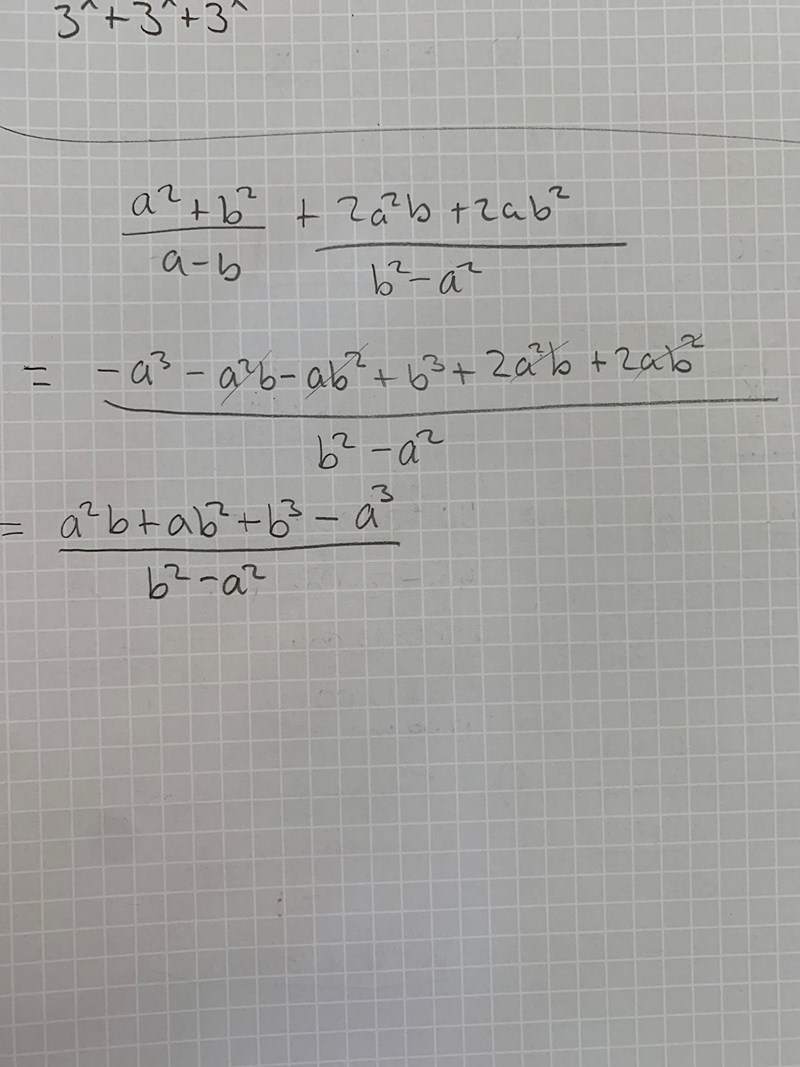 3^x+3^x+3^x
(a²+b²)/(a-b) + (2a²b+2ab²)/(b²-a²)
= (-a³-a²b-ab²+b³+2a²b+2ab²)/(b²-a²)
= (a²b+ab²+b³-a³)/(b²-a²)